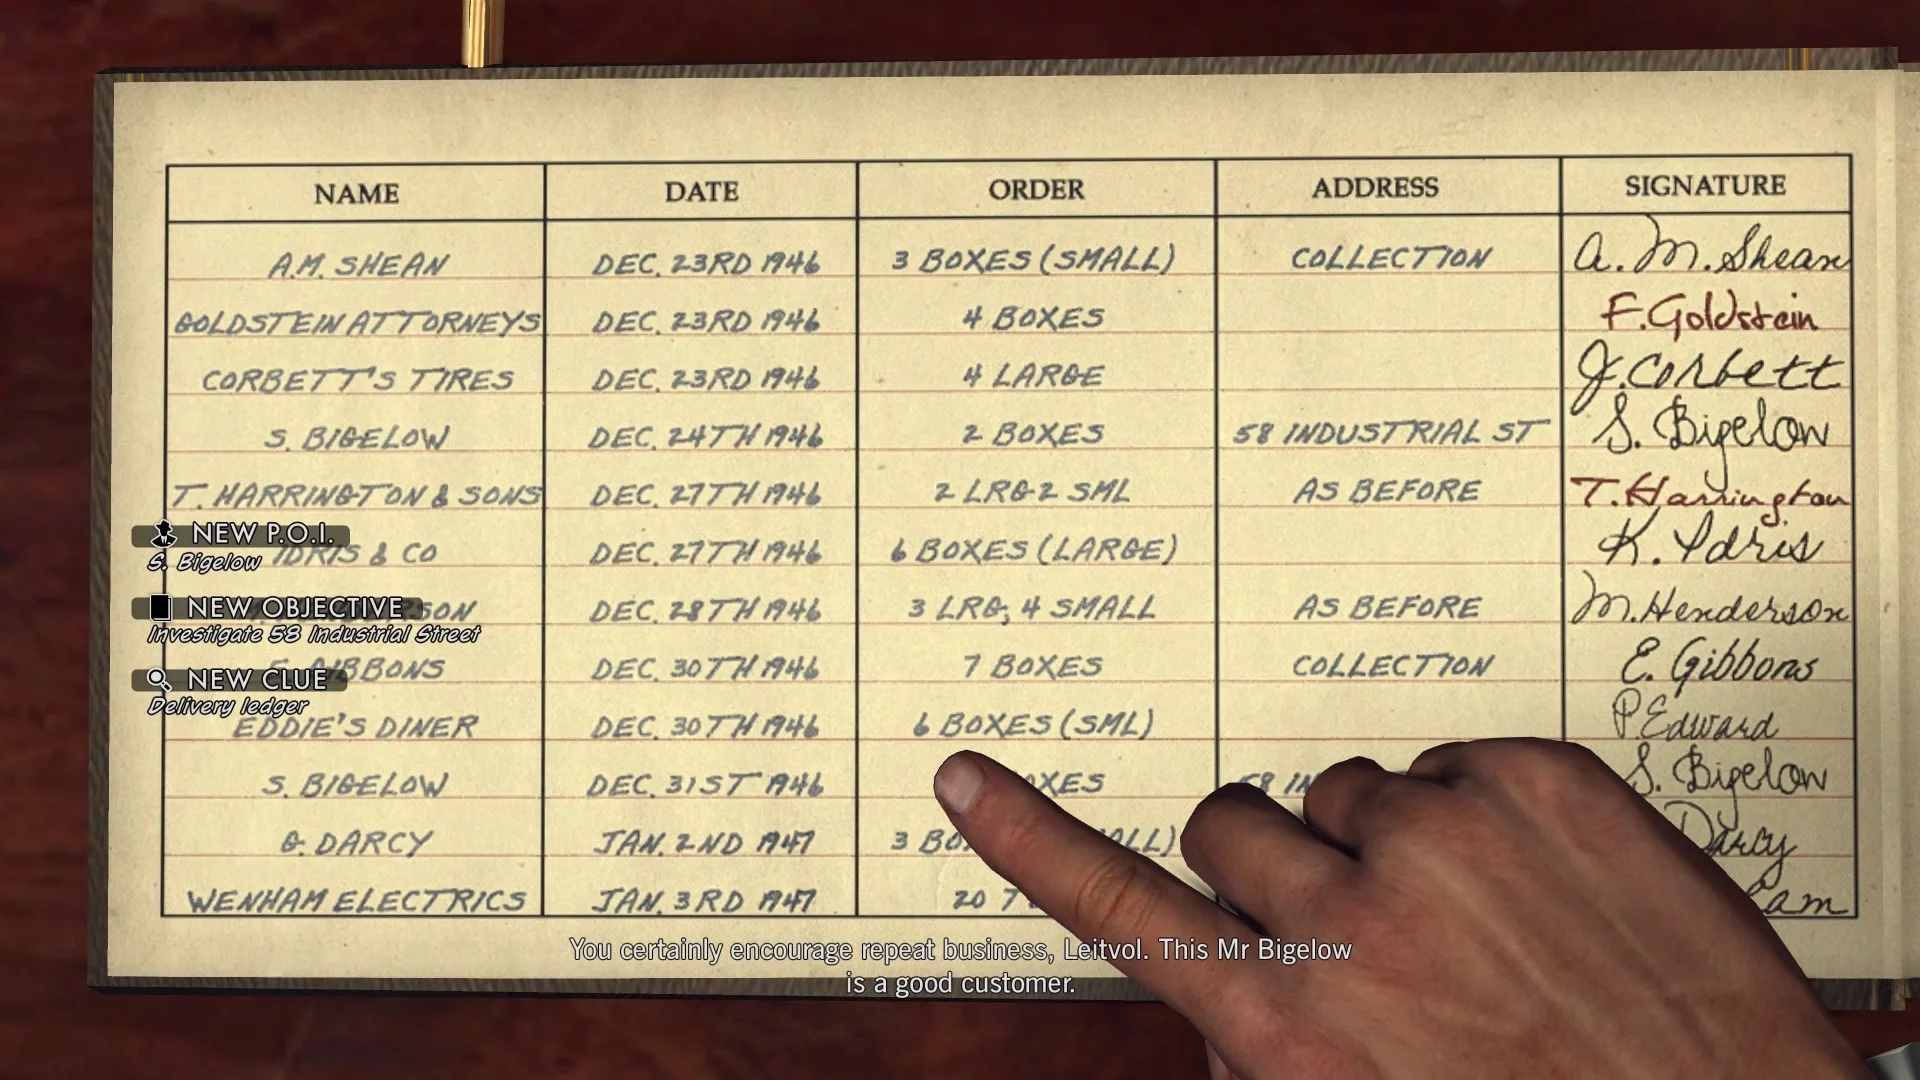 NAME DATE ORDER ADDRESS SIGNATURE
A.M. SHEAN DEC. 23RD 1946 3 BOXES (SMALL) COLLECTION A. M. Shean
GOLDSTEIN ATTORNEYS DEC. 23RD 1946 4 BOXES F. Goldstein
CORBETT'S TIRES DEC. 23RD 1946 4 LARGE J. Corbett
S. BIGELOW DEC. 24TH 1946 2 BOXES 58 INDUSTRIAL ST S. Bigelow
T. HARRINGTON & SONS DEC. 27TH 1946 2 LRG 2 SML AS BEFORE T. Harrington
NEW P.O.I.
S. Bigelow
IDRIS & CO DEC. 27TH 1946 6 BOXES (LARGE) K. Idris
NEW OBJECTIVE
Investigate 58 Industrial Street
DEC. 28TH 1946 3 LRG, 4 SMALL AS BEFORE M. Henderson
NEW CLUE
Delivery ledger
GIBBONS DEC. 30TH 1946 7 BOXES COLLECTION E. Gibbons
EDDIE'S DINER DEC. 30TH 1946 6 BOXES (SML) P. Edward
S. BIGELOW DEC. 31ST 1946 58 S. Bigelow
G. DARCY JAN. 2ND 1947 3 Darcy
WENHAM ELECTRICS JAN. 3RD 1947 20
You certainly encourage repeat business, Leitvol. This Mr Bigelow
is a good customer.